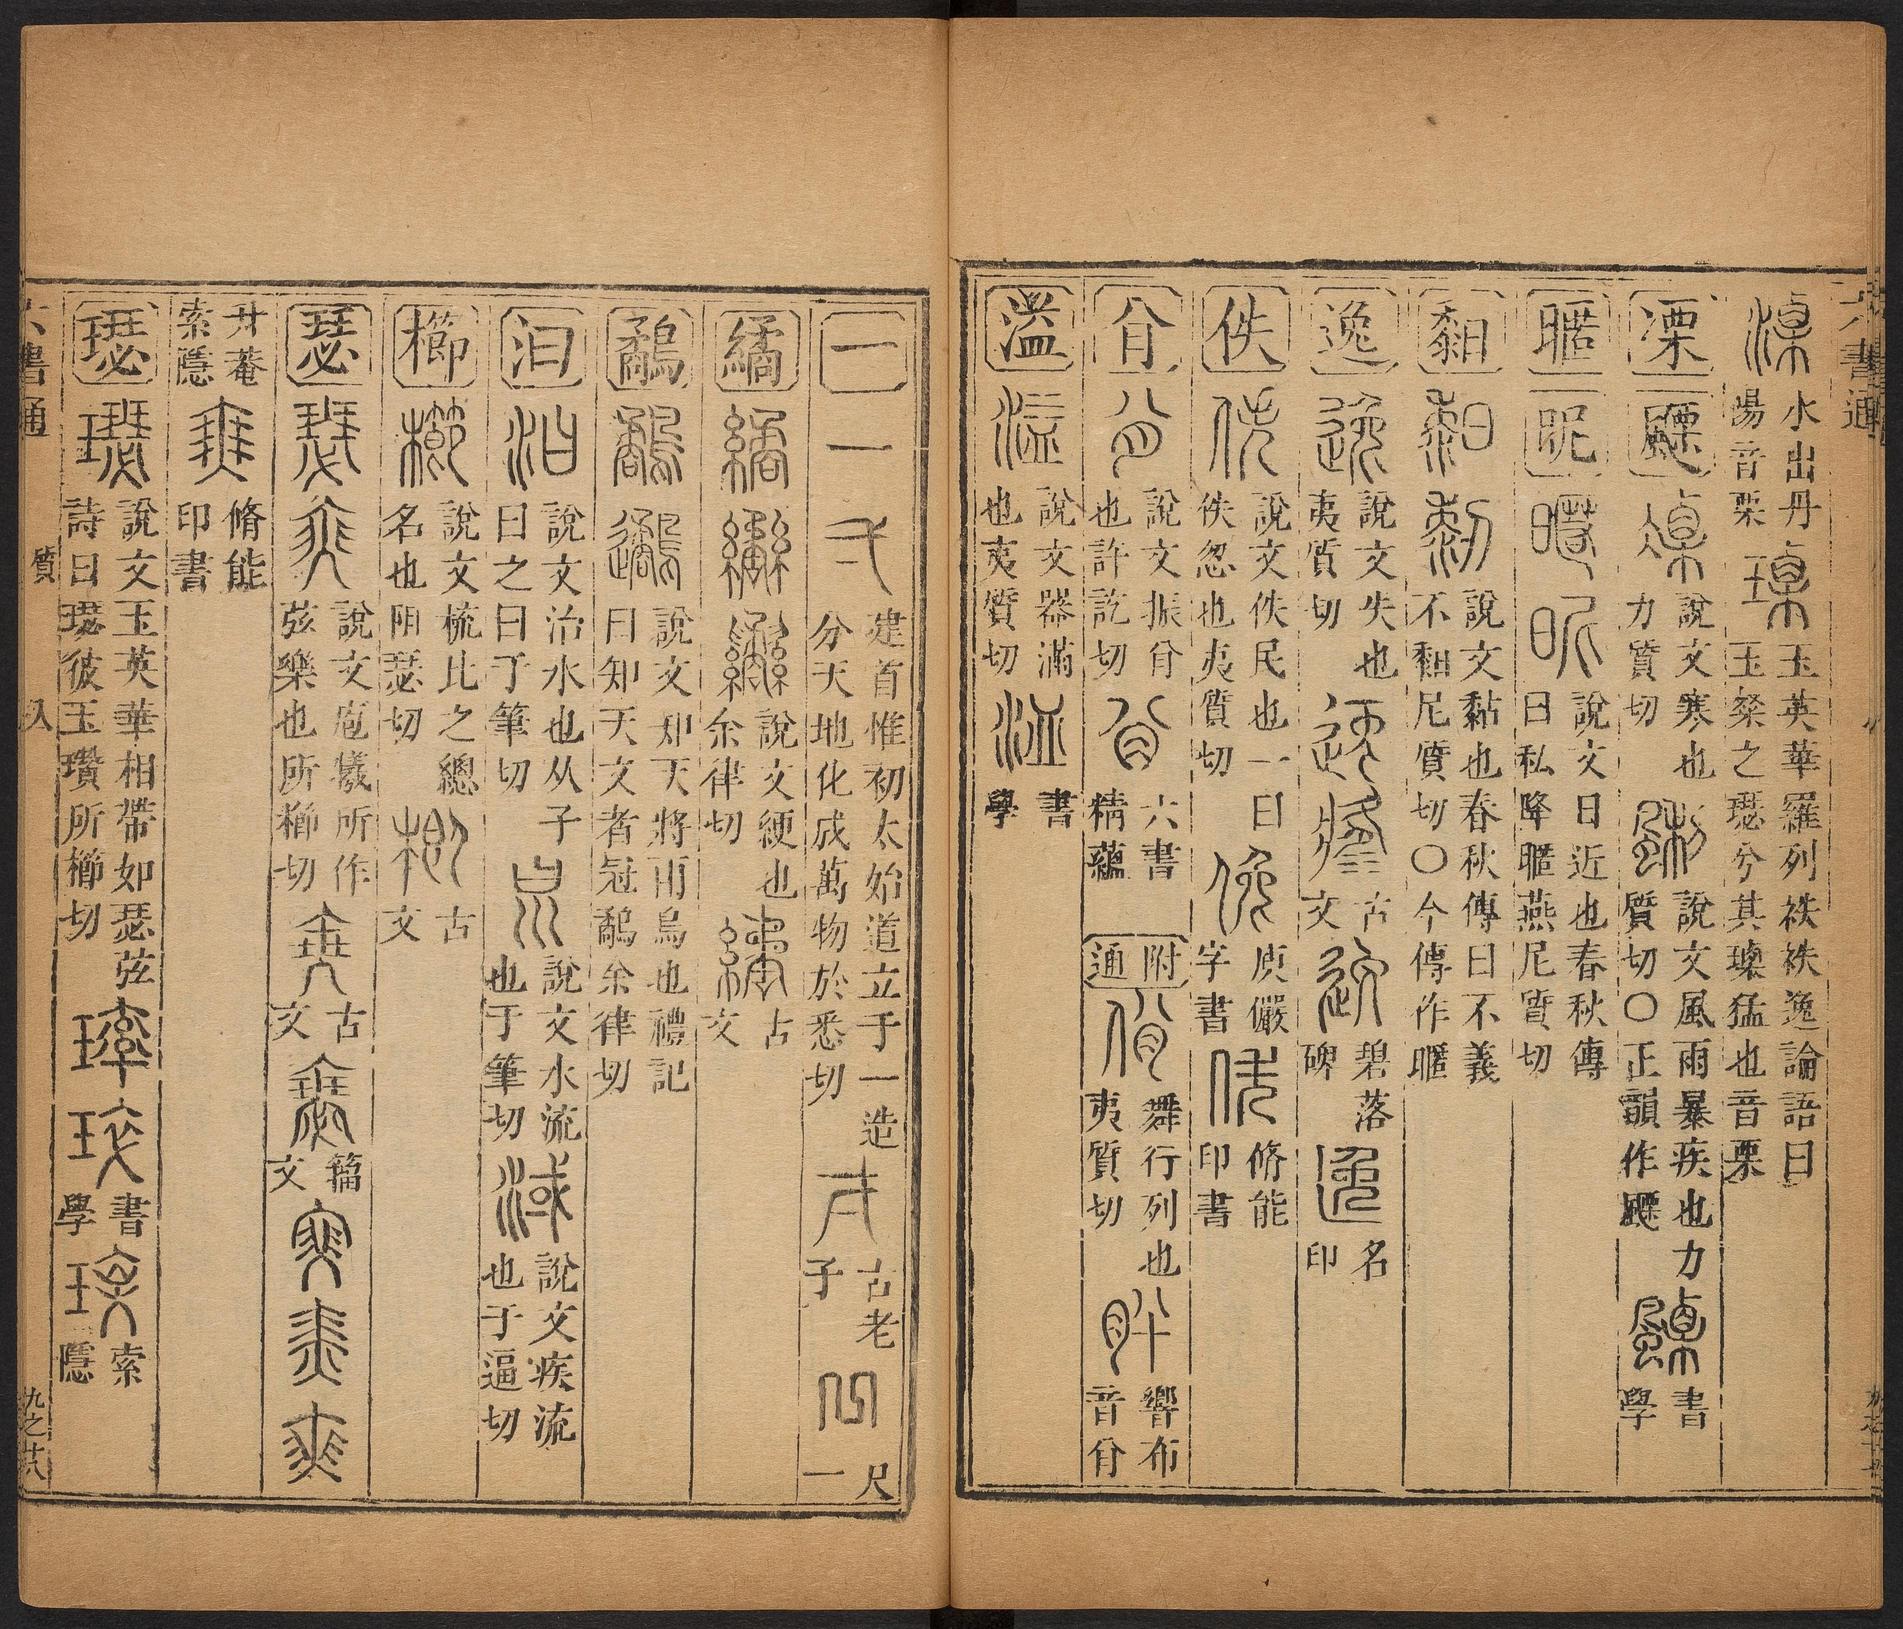 六書通
水出丹陽音栗 玉英華羅列袟袟逸論語曰玉粲之瑟兮其瑮猛也音栗
凓 飂 說文寒也力質切 說文風雨暴疾也力質切〇正韻作飃 書學
暱 昵 說文日近也春秋傳曰私降暱燕尼質切
䵒 說文黏也春秋傳曰不義不䵒尼質切〇今傳作暱
逸 說文失也夷質切 古文 碧落碑 名印
佚 說文佚民也一曰佚忽也夷質切 庾儼字書 脩能印書
㕣 說文振㕣也許訖切 六書精蘊 附通 舞行列也夷質切 響布音㕣
溢 說文器滿也夷質切 書學
一 建首惟初太始道立于一造分天地化成萬物於悉切 古老子 尺一
繘 說文綆也余律切 古文
鷸 說文知天將雨鳥也禮記曰知天文者冠鷸余律切
汩 說文治水也从子曰之曰于筆切 說文水流也于筆切 說文疾流也于逼切
櫛 說文梳比之總名也阻瑟切 古文
瑟 說文庖犧所作弦樂也所櫛切 古文 籀文
廾菴索隱 脩能印書
璱 說文玉英華相帶如瑟弦詩曰璱彼玉瓚所櫛切 書學 索隱
六書通 質 入 九之廿八